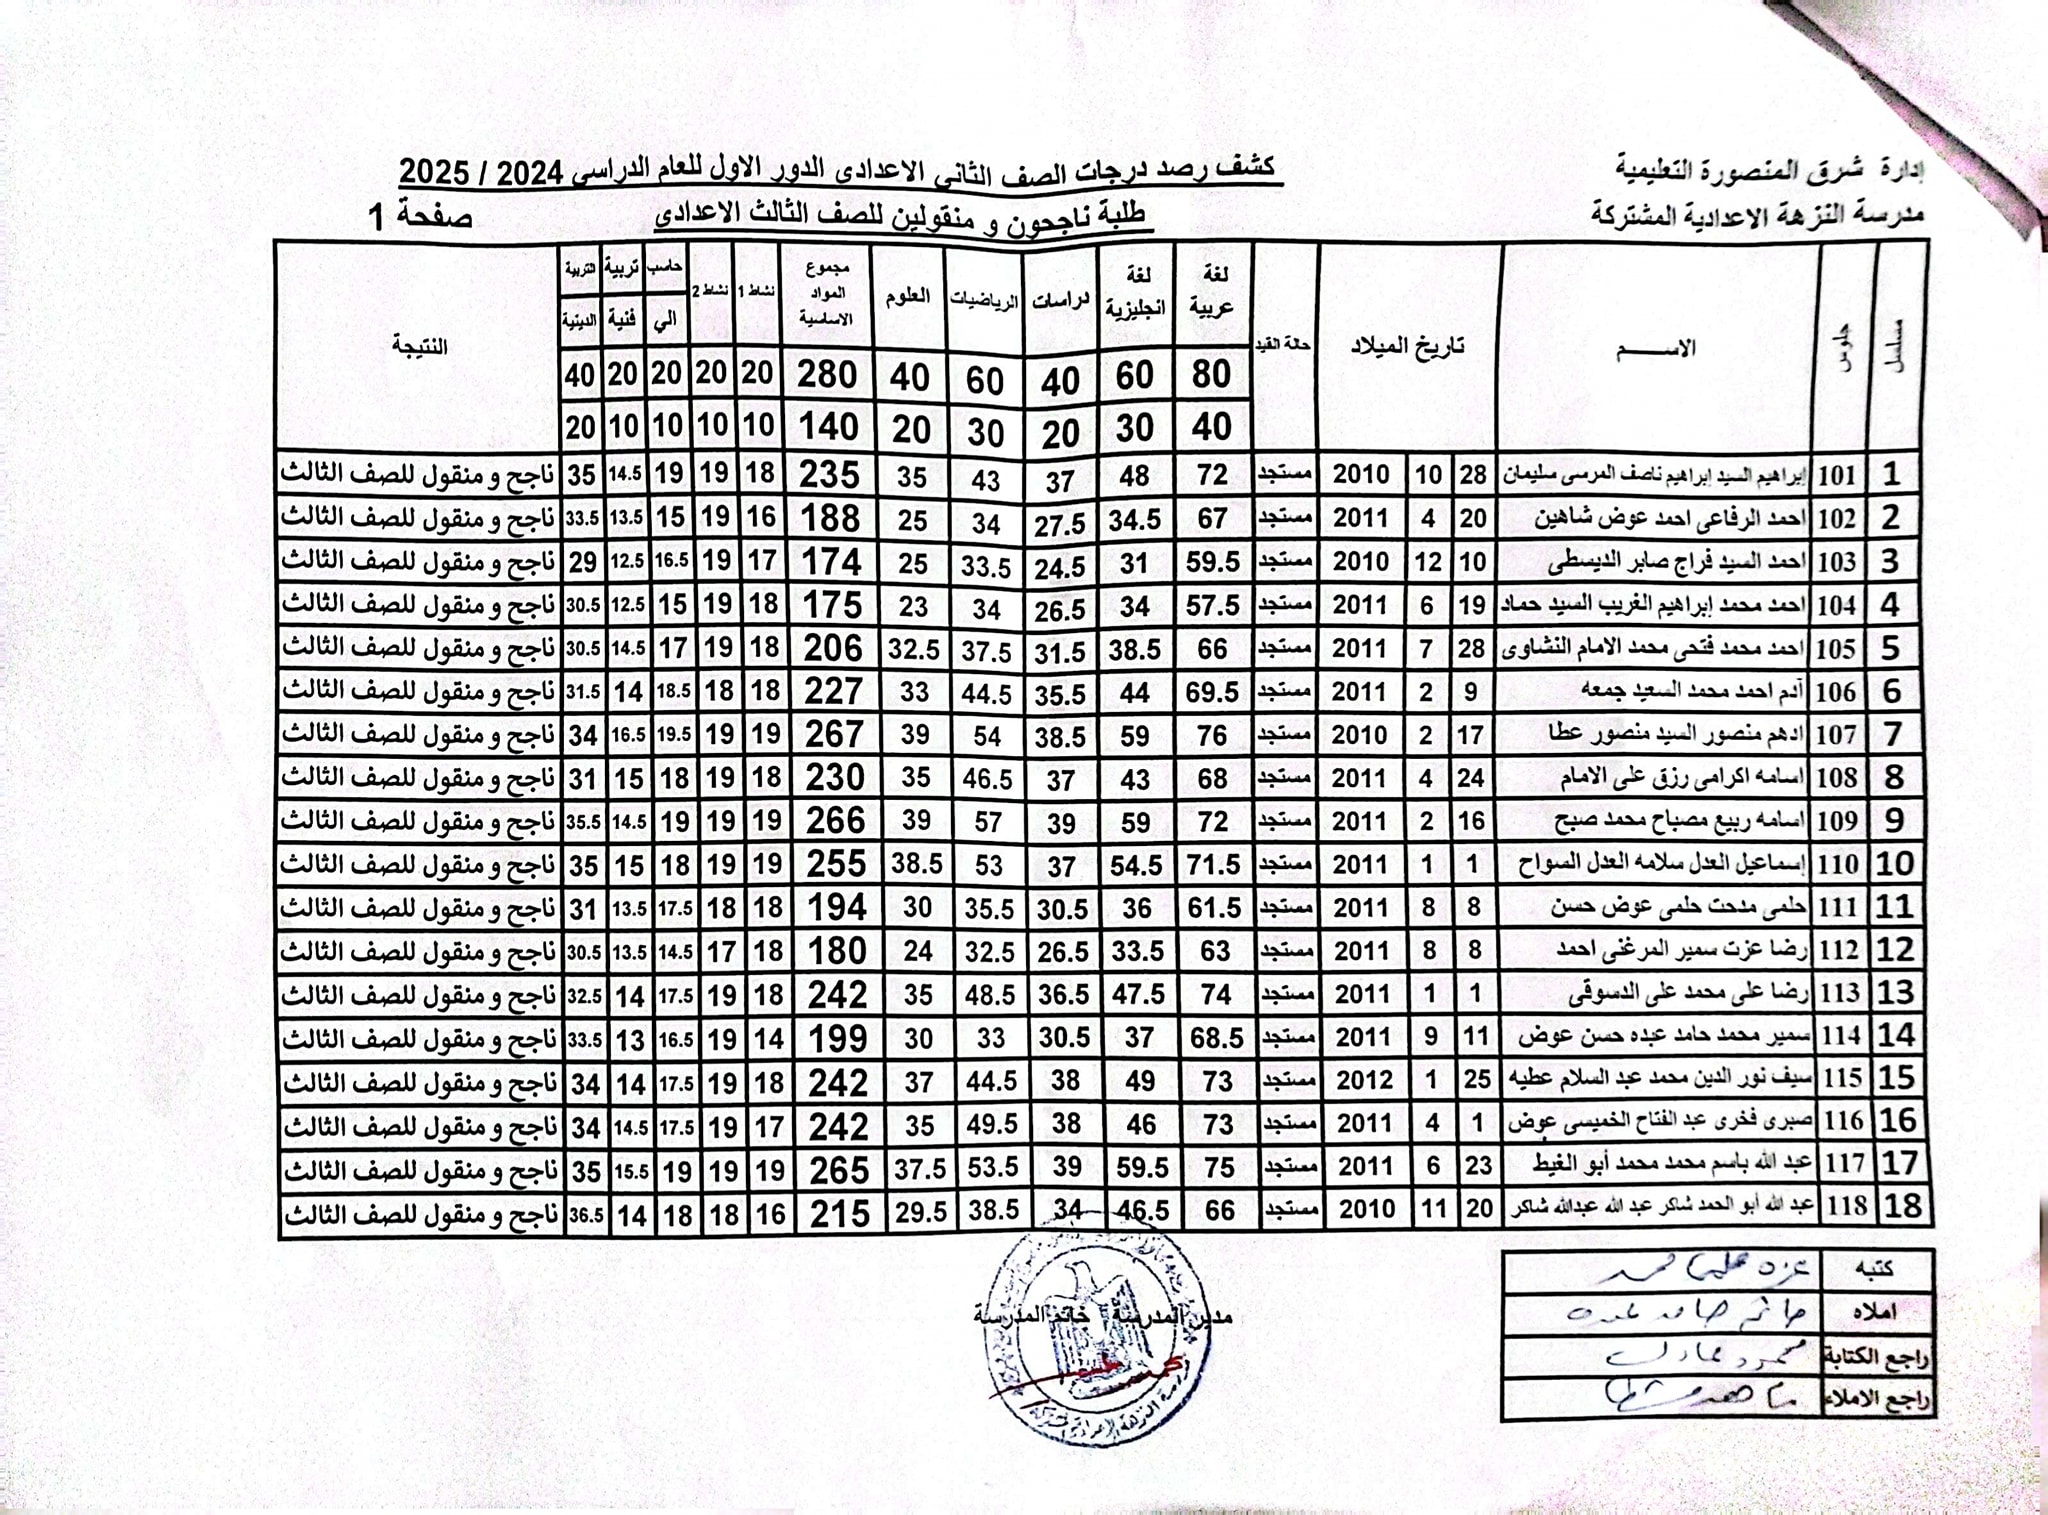 إدارة شرق المنصورة التعليمية
مدرسة النزهة الاعدادية المشتركة
كشف رصد درجات الصف الثاني الاعدادى الدور الاول للعام الدراسى 2024 / 2025
طلبة ناجحون و منقولين للصف الثالث الاعدادى
صفحة 1
مسلسل جلوس الاســـم تاريخ الميلاد حالة القيد لغة عربية لغة انجليزية دراسات الرياضيات العلوم مجموع المواد الاساسية نشاط 1 نشاط 2 حاسب الي تربية فنية التربية الدينية النتيجة
80 60 40 60 40 280 20 20 20 20 40
40 30 20 30 20 140 10 10 10 10 20
1 101 إبراهيم السيد إبراهيم ناصف المرسى سليمان 28 10 2010 مستجد 72 48 37 43 35 235 18 19 19 14.5 35 ناجح و منقول للصف الثالث
2 102 احمد الرفاعى احمد عوض شاهين 20 4 2011 مستجد 67 34.5 27.5 34 25 188 16 19 15 13.5 33.5 ناجح و منقول للصف الثالث
3 103 احمد السيد فراج صابر الديسطى 10 12 2010 مستجد 59.5 31 24.5 33.5 25 174 17 19 16.5 12.5 29 ناجح و منقول للصف الثالث
4 104 احمد محمد إبراهيم الغريب السيد حماد 19 6 2011 مستجد 57.5 34 26.5 34 23 175 18 19 15 12.5 30.5 ناجح و منقول للصف الثالث
5 105 احمد محمد فتحى محمد الامام النشاوى 28 7 2011 مستجد 66 38.5 31.5 37.5 32.5 206 18 19 17 14.5 30.5 ناجح و منقول للصف الثالث
6 106 آدم احمد محمد السعيد جمعه 9 2 2011 مستجد 69.5 44 35.5 44.5 33 227 18 18 18.5 14 31.5 ناجح و منقول للصف الثالث
7 107 ادهم منصور السيد منصور عطا 17 2 2010 مستجد 76 59 38.5 54 39 267 19 19 19.5 16.5 34 ناجح و منقول للصف الثالث
8 108 اسامه اكرامى رزق على الامام 24 4 2011 مستجد 68 43 37 46.5 35 230 18 19 18 15 31 ناجح و منقول للصف الثالث
9 109 اسامه ربيع مصباح محمد صبح 16 2 2011 مستجد 72 59 39 57 39 266 19 19 19 14.5 35.5 ناجح و منقول للصف الثالث
10 110 إسماعيل العدل سلامه العدل السواح 1 1 2011 مستجد 71.5 54.5 37 53 38.5 255 19 19 18 15 35 ناجح و منقول للصف الثالث
11 111 حلمى مدحت حلمى عوض حسن 8 8 2011 مستجد 61.5 36 30.5 35.5 30 194 18 18 17.5 13.5 31 ناجح و منقول للصف الثالث
12 112 رضا عزت سمير المرغنى احمد 8 8 2011 مستجد 63 33.5 26.5 32.5 24 180 18 17 14.5 13.5 30.5 ناجح و منقول للصف الثالث
13 113 رضا على محمد على الدسوقى 1 1 2011 مستجد 74 47.5 36.5 48.5 35 242 18 19 17.5 14 32.5 ناجح و منقول للصف الثالث
14 114 سمير محمد حامد عبده حسن عوض 11 9 2011 مستجد 68.5 37 30.5 33 30 199 14 19 16.5 13 33.5 ناجح و منقول للصف الثالث
15 115 سيف نور الدين محمد عبد السلام عطيه 25 1 2012 مستجد 73 49 38 44.5 37 242 18 19 17.5 14 34 ناجح و منقول للصف الثالث
16 116 صبرى فخرى عبد الفتاح الخميسى عوض 1 4 2011 مستجد 73 46 38 49.5 35 242 17 19 17.5 14.5 34 ناجح و منقول للصف الثالث
17 117 عبد الله باسم محمد محمد أبو الغيط 23 6 2011 مستجد 75 59.5 39 53.5 37.5 265 19 19 19 15.5 35 ناجح و منقول للصف الثالث
18 118 عبد الله أبو الحمد شاكر عبد الله عبدالله شاكر 20 11 2010 مستجد 66 46.5 34 38.5 29.5 215 16 18 18 14 36.5 ناجح و منقول للصف الثالث
كتبه
املاه
راجع الكتابة محمود عادل
راجع الاملاء
مدير المدرسة خاتم المدرسة